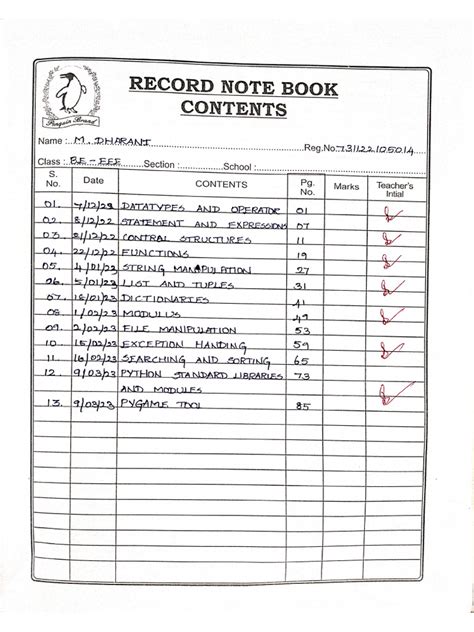 Penguin Brand
RECORD NOTE BOOK
CONTENTS
Name : M. DHARANI Reg.No. 731122105014
Class : B.E - EEE Section : School :
S. No. Date CONTENTS Pg. No. Marks Teacher's Intial
01. 7/12/23 DATATYPES AND OPERATOR 01
02. 8/12/22 STATEMENT AND EXPRESSIONS 07
03. 21/12/22 CONTRAL STRUCTURES 11
04. 22/12/22 FUNCTIONS 19
05. 4/01/23 STRING MANIPULATION 27
06. 5/01/23 LIST AND TUPLES 31
07. 18/01/23 DICTIONARIES 41
08. 1/02/23 MODULUS 49
09. 2/02/23 FILE MANIPULATION 53
10. 15/02/23 EXCEPTION HANDING 59
11. 16/02/23 SEARCHING AND SORTING 65
12. 9/03/23 PYTHON STANDARD LIBRARIES 73
AND MODULES
13. 9/03/23 PYGAME TOOL 85